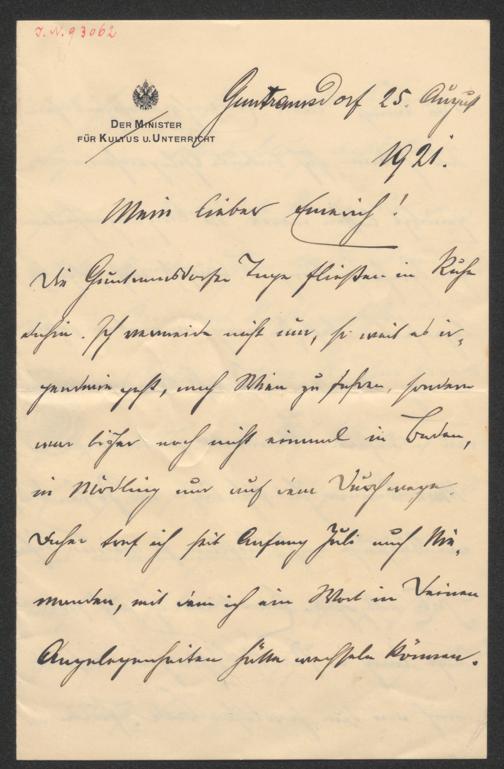 J.N. 93062
DER MINISTER
FÜR KULTUS U. UNTERRICHT
Guntramsdorf 25. August
1921.
Mein lieber Emerich!
Die Guntramsdorfer Tage fließen in Ruhe
dahin. Ich vermeide nicht nur, so weit es ir-
gendwie geht, nach Wien zu fahren, sondern
war bisher noch nicht einmal in Baden,
in Mödling nur auf dem Durchwege.
Daher traf ich seit Anfang Juli auch Nie-
manden, mit dem ich ein Wort in Deinen
Angelegenheiten hätte wechseln können.